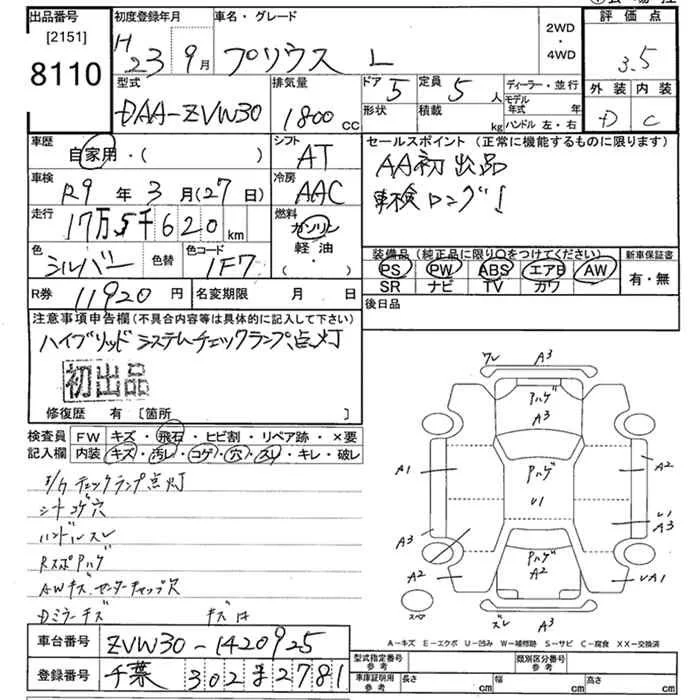 出品番号
[2151]
8110
初度登録年月
H 23 9月
車名・グレード
プリウス L
2WD
・
4WD
評価点
3.5
外装 内装
D C
型式
DAA-ZVW30
排気量
1800 CC
ドア 5
形状
定員 5 人
積載 kg
ディーラー・並行
モデル年式 年
ハンドル 左・右
車歴
自家用・( )
シフト
AT
車検
R9 年 3 月(27日)
冷房
AAC
走行
17万5千620 km
燃料
ガソリン
軽油
( ・ )
色
シルバー
色替
色コード
1F7
R券
11920 円
名変期限 月 日
セールスポイント (正常に機能するものに限ります)
AA初出品
車検ロング!
装備品(純正品に限り○をつけてください)
PS PW ABS エアB AW
SR ナビ TV カワ
新車保証書
有・無
後日品
注意事項申告欄(不具合内容等は具体的に記入して下さい)
ハイブリッドシステムチェックランプ点灯
初出品
修復歴 有 [箇所 ]
検査員記入欄
FW キズ・飛石・ヒビ割・リペア跡・×要
内装 キズ・汚レ・コゲ・穴・スレ・キレ・破レ
チェックランプ点灯
シートコゲ穴
ハンドルスレ
RスポPハゲ
AWキズ センターキャップ欠
Dミラーキズ
車台番号
ZVW30-1420925
登録番号
千葉 302 2781
A3
Pハゲ
A3
A1
A2
Pハゲ
U1
U1
A3
A3
A2
Pハゲ
A2
UA1
スペア
ズレ
A3
A-キズ E-エクボ U-凹み W-補修跡 S-サビ C-腐食 XX-交換済
型式指定番号
参考
類別区分番号
参考
車庫証明用
参考
長さ cm 幅 cm 高さ cm